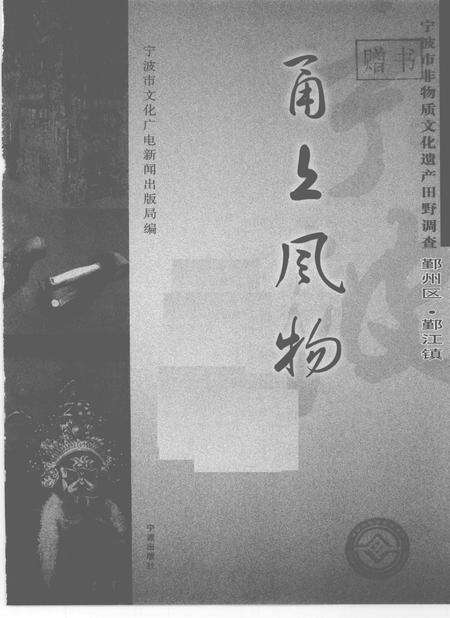 宁波市非物质文化遗产田野调查
鄞州区·鄞江镇
赠书
甬上风物
宁波市文化广电新闻出版局编
宁波出版社